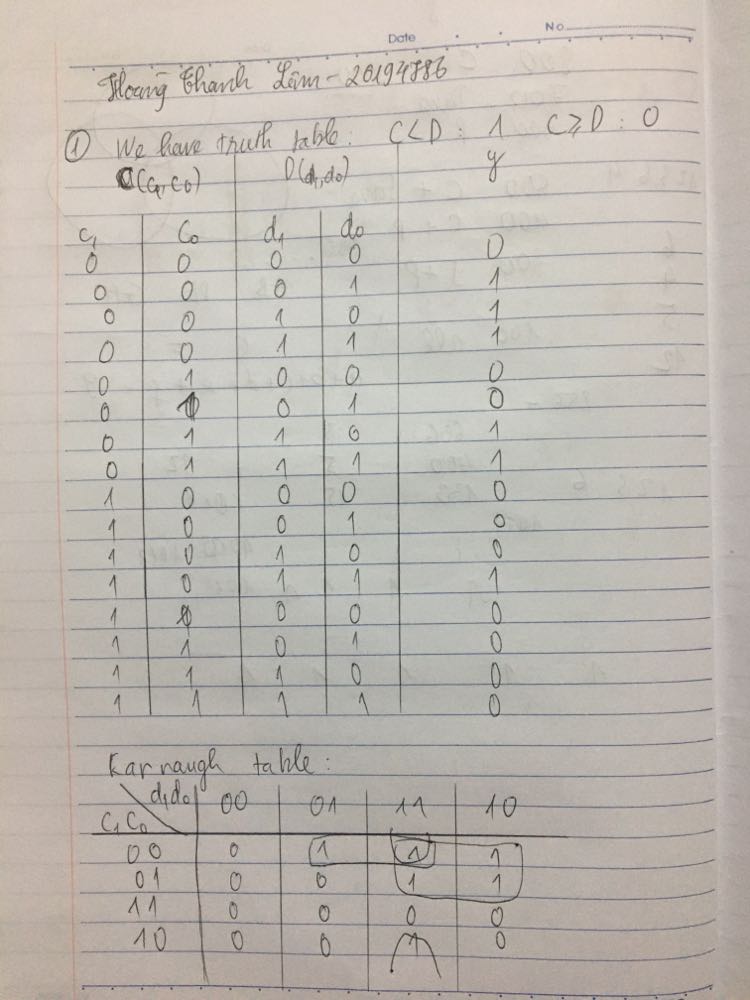 Date No.
Hoàng Thanh Lâm - 20194786
① We have truth table: C<D: 1 C≥D: 0
C(c₁,c₀) D(d₁,d₀) y
c₁ c₀ d₁ d₀
0 0 0 0 0
0 0 0 1 1
0 0 1 0 1
0 0 1 1 1
0 1 0 0 0
0 1 0 1 0
0 1 1 0 1
0 1 1 1 1
1 0 0 0 0
1 0 0 1 0
1 0 1 0 0
1 0 1 1 1
1 1 0 0 0
1 1 0 1 0
1 1 1 0 0
1 1 1 1 0
Karnaugh table:
d₁d₀ 00 01 11 10
C₁C₀
00 0 1 1 1
01 0 0 1 1
11 0 0 0 0
10 0 0 1 0